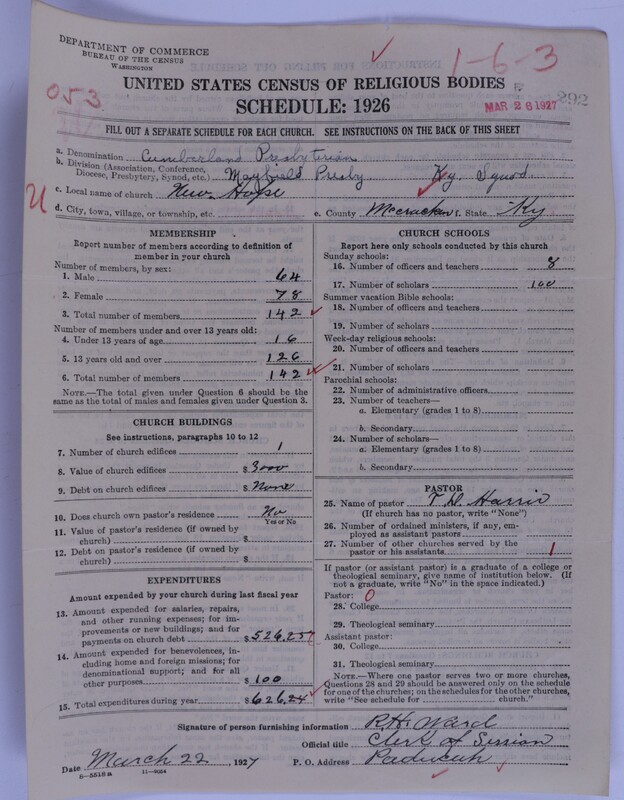 DEPARTMENT OF COMMERCE
BUREAU OF THE CENSUS
WASHINGTON
1-6-3
UNITED STATES CENSUS OF RELIGIOUS BODIES
053
SCHEDULE: 1926
MAR 26 1927
292
FILL OUT A SEPARATE SCHEDULE FOR EACH CHURCH. SEE INSTRUCTIONS ON THE BACK OF THIS SHEET
a. Denomination Cumberland Presbyterian
b. Division (Association, Conference, Diocese, Presbytery, Synod, etc.) Mayfield Presby Ky. Synod.
c. Local name of church New Hope
d. City, town, village, or township, etc.
e. County Mccracken f. State Ky
MEMBERSHIP
Report number of members according to definition of
member in your church
Number of members, by sex:
1. Male 64
2. Female 78
3. Total number of members 142
Number of members under and over 13 years old:
4. Under 13 years of age 16
5. 13 years old and over 126
6. Total number of members 142
NOTE.—The total given under Question 6 should be
same as the total of males and females given under Question 3.
CHURCH BUILDINGS
See instructions, paragraphs 10 to 12
7. Number of church edifices 1
8. Value of church edifices $ 3000
9. Debt on church edifices $ None
10. Does church own pastor's residence No
Yes or No
11. Value of pastor's residence (if owned by
church) $
12. Debt on pastor's residence (if owned by
church) $
EXPENDITURES
Amount expended by your church during last fiscal year
13. Amount expended for salaries, repairs,
and other running expenses; for im-
provements or new buildings; and for
payments on church debt $ 526.25
14. Amount expended for benevolences, in-
cluding home and foreign missions; for
denominational support; and for all
other purposes $ 100
15. Total expenditures during year $ 626.24
CHURCH SCHOOLS
Report here only schools conducted by this church
Sunday schools:
16. Number of officers and teachers 8
17. Number of scholars 100
Summer vacation Bible schools:
18. Number of officers and teachers
19. Number of scholars
Week-day religious schools:
20. Number of officers and teachers
21. Number of scholars
Parochial schools:
22. Number of administrative officers
23. Number of teachers—
a. Elementary (grades 1 to 8)
b. Secondary
24. Number of scholars—
a. Elementary (grades 1 to 8)
b. Secondary
PASTOR
25. Name of pastor T. D. Harris
(If church has no pastor, write "None")
26. Number of ordained ministers, if any, em-
ployed as assistant pastors
27. Number of other churches served by the
pastor or his assistants 1
If pastor (or assistant pastor) is a graduate of a college or
theological seminary, give name of institution below. (If
not a graduate, write "No" in the space indicated.)
Pastor: 0
28. College
29. Theological seminary
Assistant pastor:
30. College
31. Theological seminary
NOTE.—Where one pastor serves two or more churches,
Questions 28 and 29 should be answered only on the schedule
for one of the churches; on the schedules for the other churches,
write "See schedule for church."
Signature of person furnishing information R. H. Ward
Official title Clerk of Session
Date March 22, 1927 P. O. Address Paducah
8-5518a 11-9224